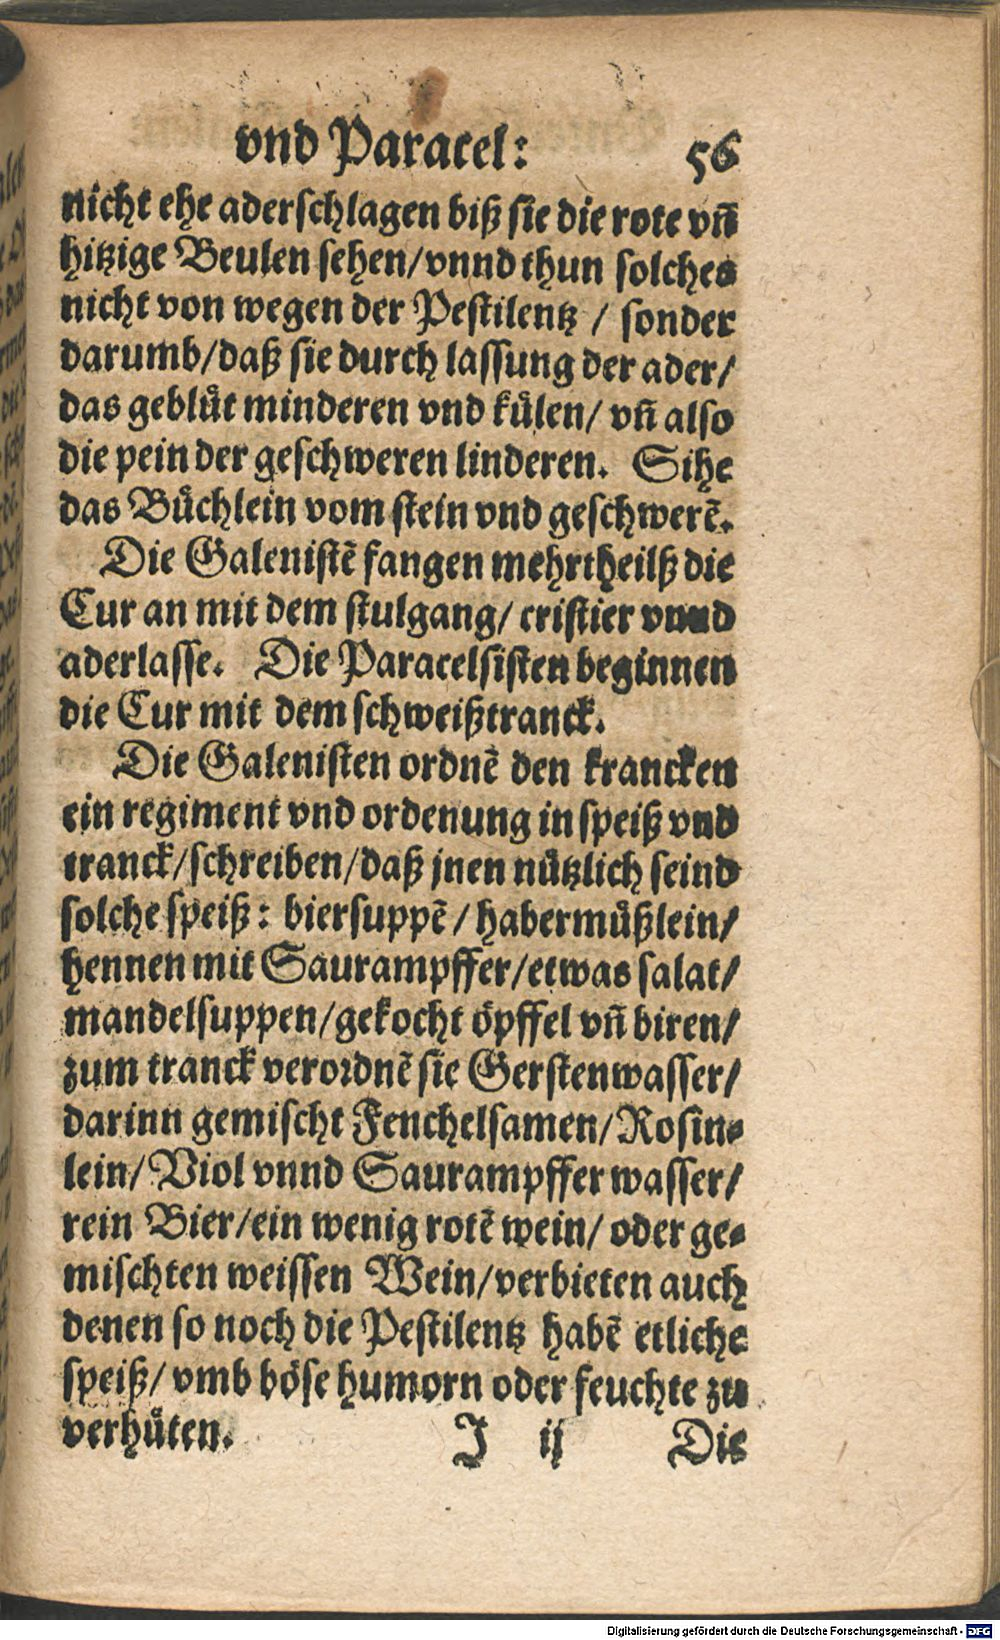 vnd Paracel: 56
nicht ehe aderschlagen biß sie die rote vñ
hitzige Beulen sehen/vnnd thun solches
nicht von wegen der Pestilentz / sonder
darumb/daß sie durch lassung der ader/
das geblüt minderen vnd külen/ vñ also
die pein der geschweren linderen. Sihe
das Büchlein vom stein vnd geschwerẽ.
Die Galenistẽ fangen mehrtheilß die
Cur an mit dem stulgang/ cristier vnnd
aderlasse. Die Paracelsisten beginnen
die Cur mit dem schweißtranck.
Die Galenisten ordnẽ den krancken
ein regiment vnd ordenung in speiß vnd
tranck/schreiben/daß jnen nützlich seind
solche speiß: biersuppẽ / habermüßlein/
hennen mit Saurampffer/etwas salat/
mandelsuppen/gekocht öpffel vñ biren/
zum tranck verordnẽ sie Gerstenwasser/
darinn gemischt Fenchelsamen/Rosin-
lein/ Viol vnnd Saurampffer wasser/
rein Bier/ein wenig rotẽ wein/ oder ge-
mischten weissen Wein/verbieten auch
denen so noch die Pestilentz habẽ etliche
speiß/ vmb böse humorn oder feuchte zu
verhüten. J ij Die
Digitalisierung gefördert durch die Deutsche Forschungsgemeinschaft - DFG